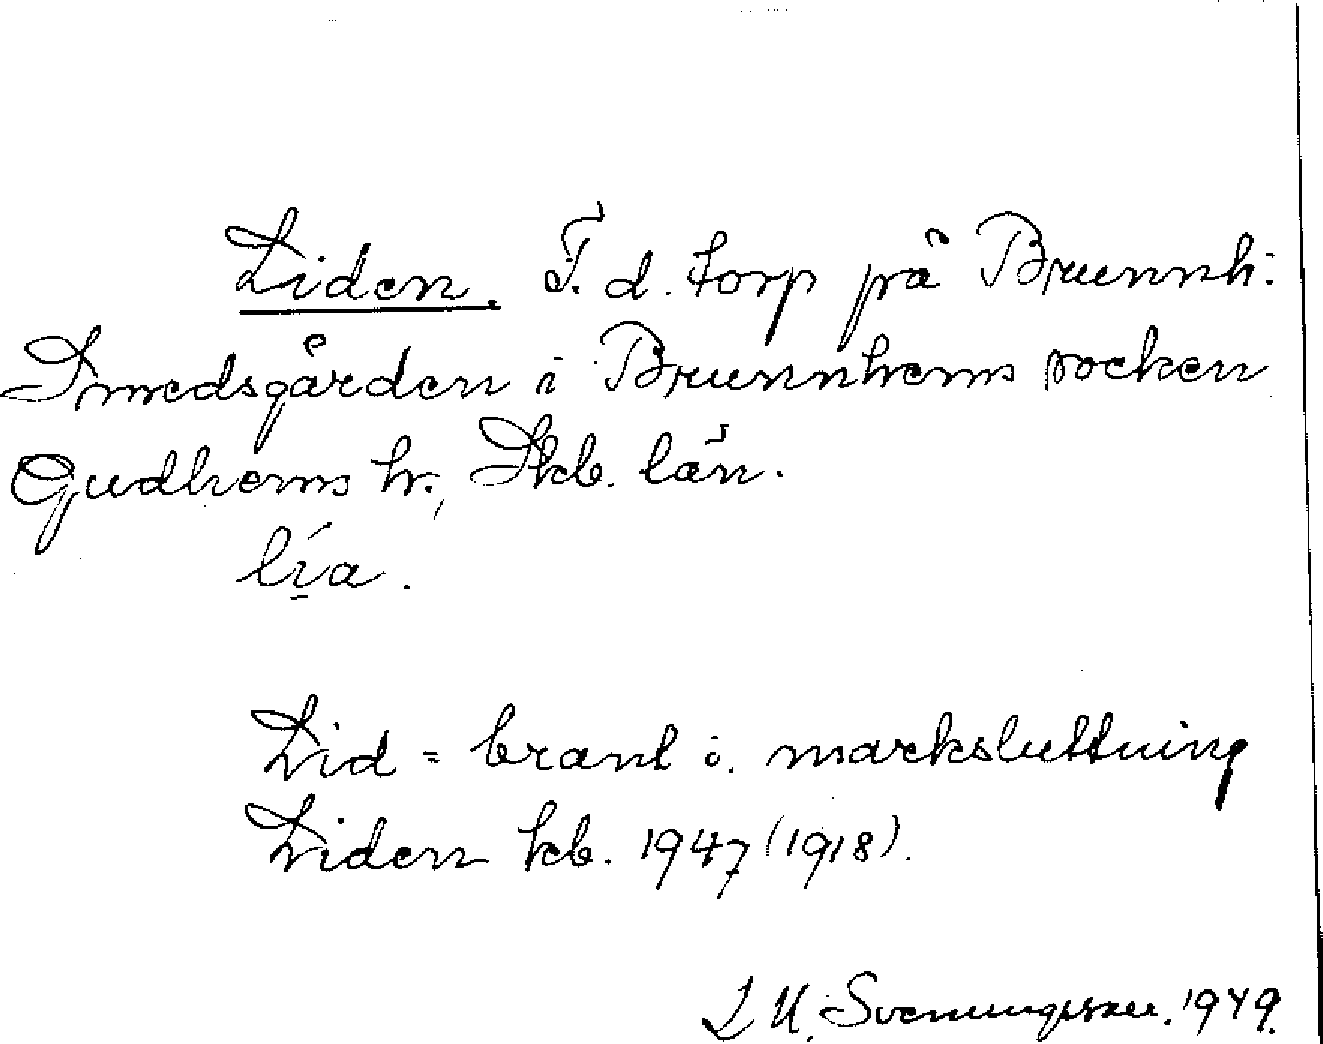 Liden. F. d. torp på Brunnh:
Smedsgården i Brunnhems socken
Gudhems hr., Skb. län.
lía.
Lid = brant i. marksluttning
Liden kb. 1947 (1918).
L U. Svenungsson. 1949.